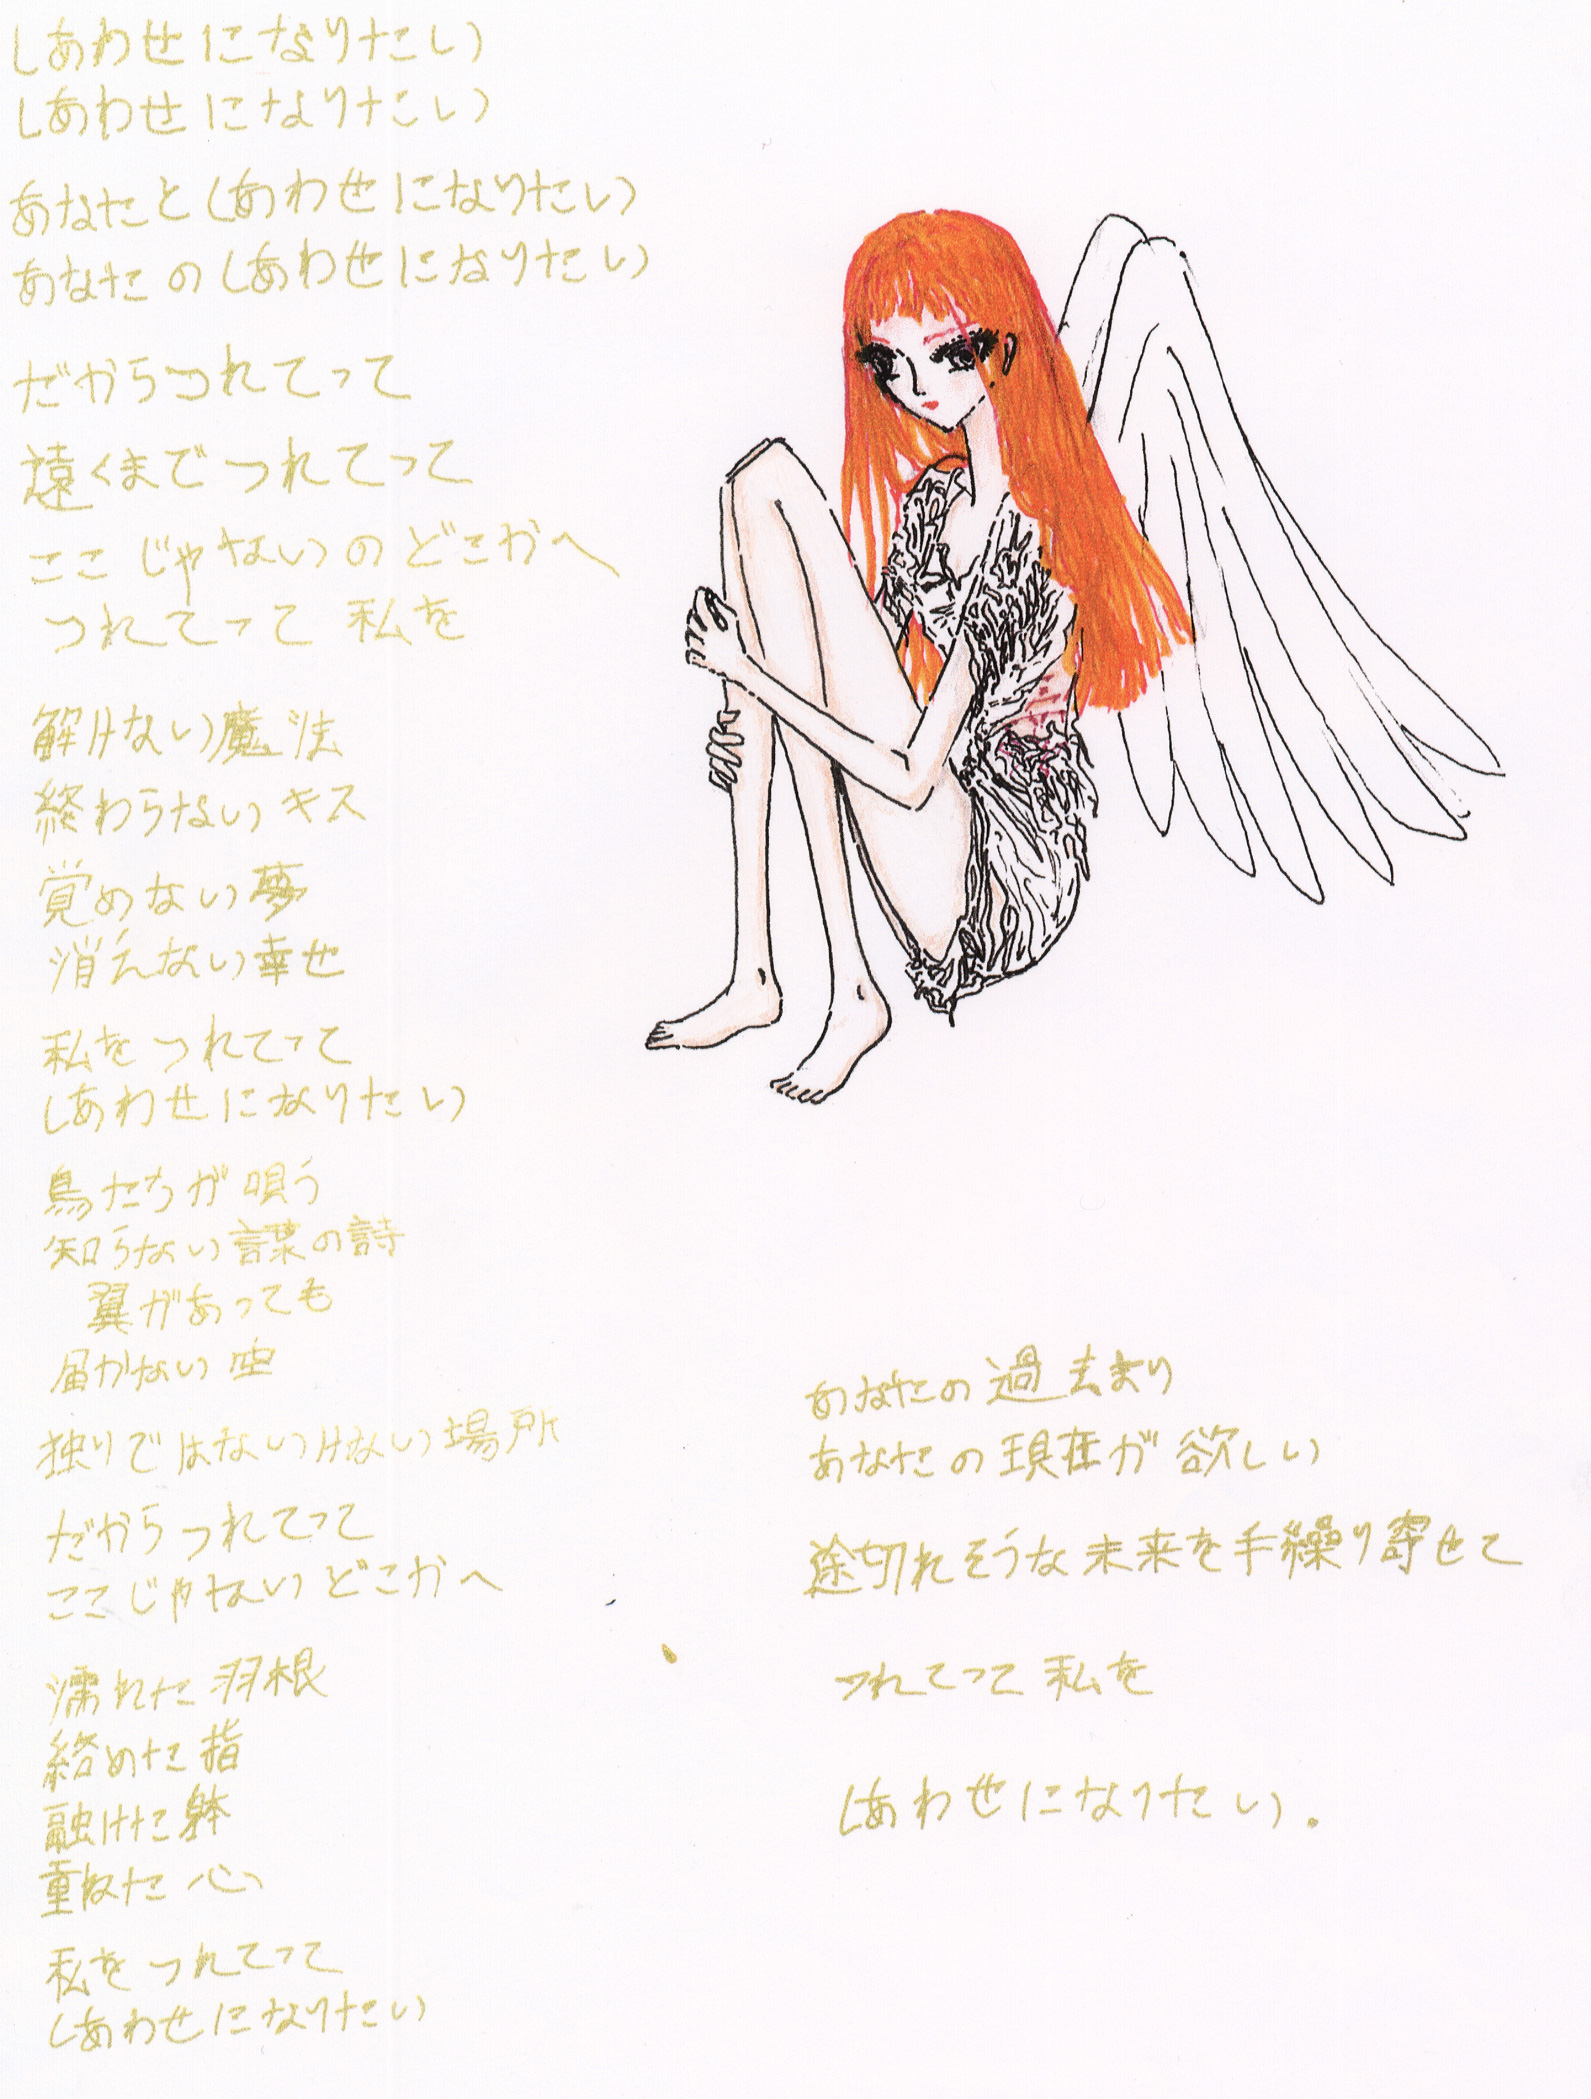 しあわせになりたい
しあわせになりたい
あなたとしあわせになりたい
あなたのしあわせになりたい
だからつれてって
遠くまでつれてって
ここじゃないのどこかへ
つれてって 私を
解けない魔法
終わらないキス
覚めない夢
消えない幸せ
私をつれてって
しあわせになりたい
鳥たちが唄う
知らない言葉の詩
翼があっても
届かない空
独りではないけない場所
だからつれてって
ここじゃないどこかへ
濡れた羽根
絡めた指
融けた躰
重ねた心
私をつれてって
しあわせになりたい
あなたの過去より
あなたの現在が欲しい
途切れそうな未来を手繰り寄せて
つれてって 私を
しあわせになりたい.